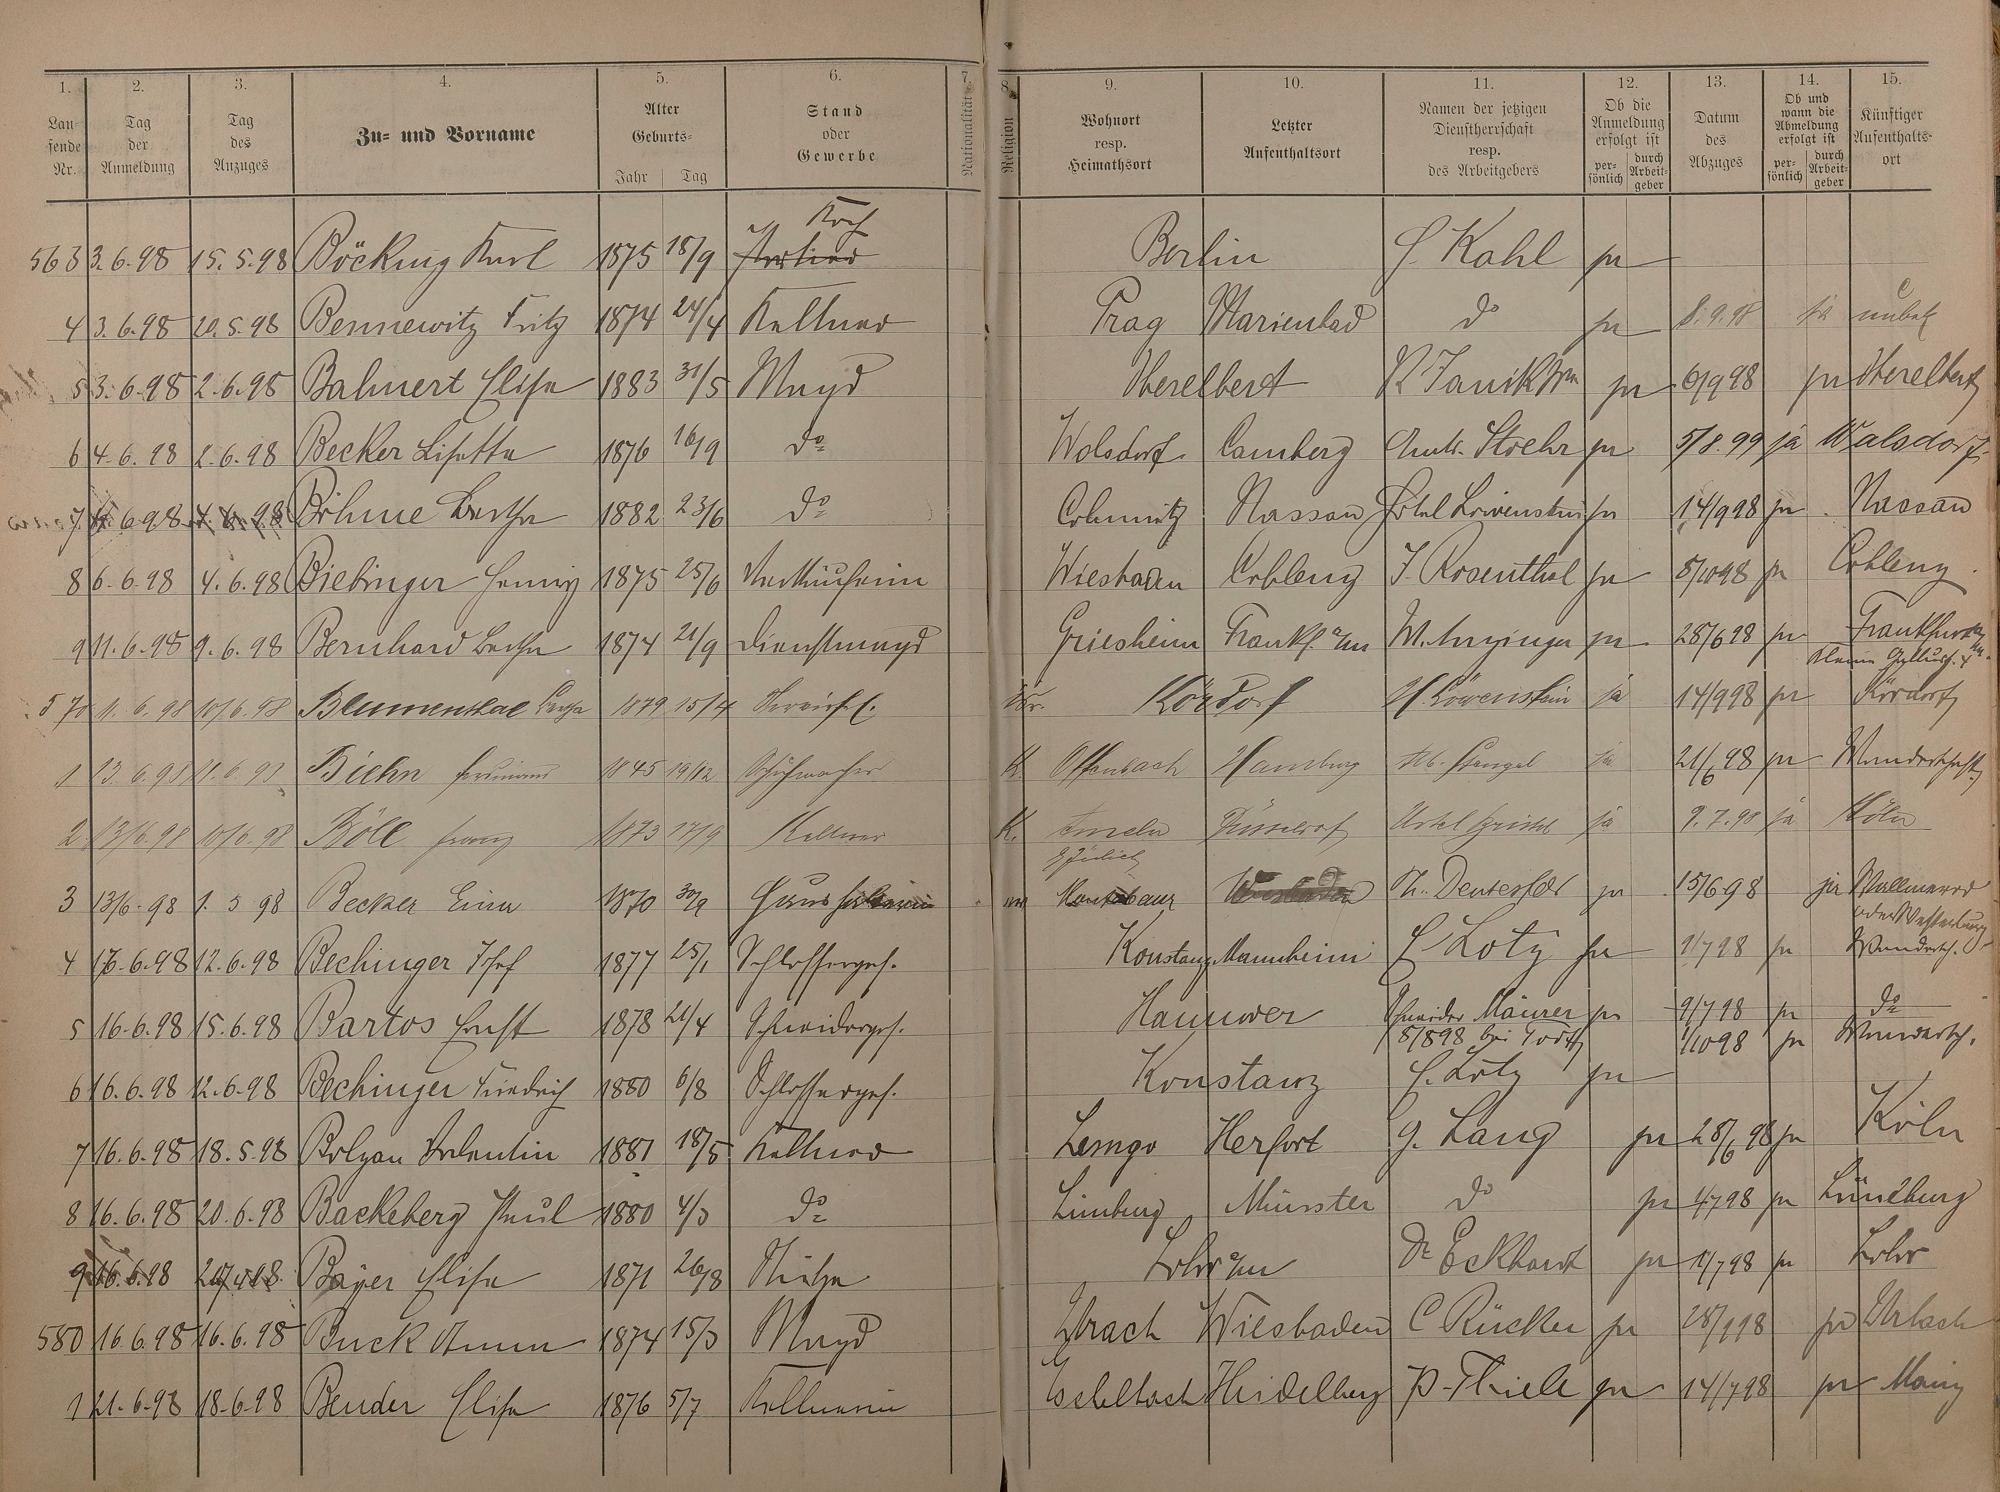 1. 2. 3. 4. 5. 6. 7. 8. 9. 10. 11. 12. 13. 14. 15.
Lau- fende Nr. Tag der Anmeldung Tag des Anzuges Zu- und Vorname Alter Geburts- Jahr Tag Stand oder Gewerbe Nationalität Religion Wohnort resp. Heimathsort Letzter Aufenthaltsort Namen der jetzigen Dienstherrschaft resp. des Arbeitgebers Ob die Anmeldung erfolgt ist per- sönlich durch Arbeit- geber Datum des Abzuges Ob und wann die Abmeldung erfolgt ist per- sönlich durch Arbeit- geber Künftiger Aufenthalts- ort
Koch
563 3.6.98 15.5.98 Böcking Karl 1875 18/9 Berlin C. Kahl ja
4 3.6.98 20.5.98 Bennewitz Fritz 1874 24/4 Kellner Prag Marienbad do ja 8.9.98 ja unbek
5 3.6.98 2.6.98 Bahnert Elise 1883 31/5 Magd Oberelbert ja 6/9 98 ja Oberelbert
6 4.6.98 2.6.98 Becker Lisette 1876 16/9 do Wolsdorf Camberg Stoehr ja 5/8.99 ja Walsdorf
7 Böhme Bertha 1882 23/6 do Nassau Hotel Löwenstein ja 14/9 98 ja Nassau
8 6.6.98 4.6.98 Biebinger Henny 1875 25/6 Verkäuferin Wiesbaden Coblenz J. Rosenthal ja 5/10 98 ja Coblenz
9 11.6.98 9.6.98 Bernhard Bertha 1874 21/9 Dienstmagd Griesheim Frankf. a/m ja 28/6 98 ja Frankfurt
570 11.6.98 10/6.98 Blumenthal Bertha 1879 15/4 Isr. Kördorf H. Löwenstein ja 14/9 98 ja Kördorf
1 13.6.98 11.6.98 Biehn Hermann 1845 19/12 Schuhmacher K. Offenbach Hamburg Stengel ja 21/6 98 ja Wanderschaft
2 13/6.98 10/6.98 Böll Franz 1873 17/9 Kellner K. Düsseldorf Hotel ja 9.7.98 ja Köln
3 13/6.98 1.5 98 Becker Lina 1870 30/9 Montabaur Th. ja 15/6 98 ja Wallmerod
oder Westerburg
4 16.6.98 12.6.98 Bechinger Josef 1877 25/1 Schlosserges. Konstanz Mannheim C. Lotz ja 9/7 98 ja Wandersch.
5 16.6.98 15.6.98 Bartos Ernst 1878 21/4 Schneiderges. Hannover Schneider Mäurer ja 9/7 98 ja do
8/8 98 bei 1/10 98 ja Wandersch.
6 16.6.98 12.6.98 Bechinger Friedrich 1880 6/8 Schlosserges. Konstanz C. Lotz ja
7 16.6.98 18.5.98 Bolzau Valentin 1881 18/5 Kellner Lemgo Herfort G. Lang ja 28/6 98 ja Köln
8 16.6.98 20.6.98 Backeberg Paul 1880 4/3 do Limburg Münster do ja 4/7 98 ja Lüneburg
9 16.6.98 Bayer Elise 1871 26/8 Lohr a/m Dr Eckhardt ja 11/7 98 ja Lohr
580 16.6.98 16.6.98 Buck Anna 1874 15/3 Magd Wiesbaden C Rücker ja ja Urbach
1 21.6.98 18.6.98 Bender Elise 1876 5/7 Kellnerin Eschelbach Heidelberg P. Thiele ja 14/7 98 ja Mainz